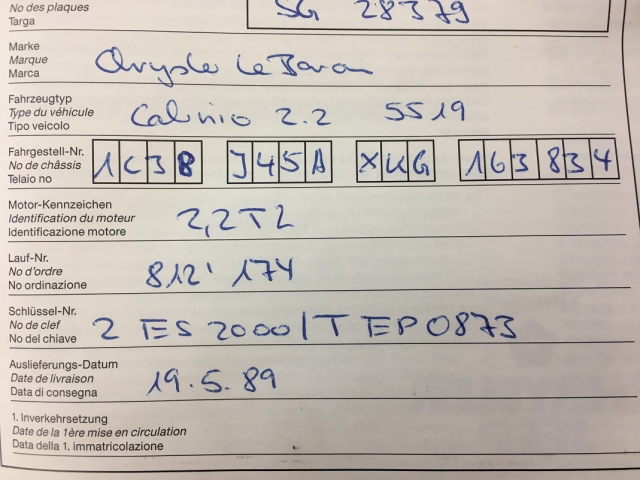 No des plaques
Targa
SG 28379
Marke
Marque
Marca
Chrysler Le Baron
Fahrzeugtyp
Type du véhicule
Tipo veicolo
Cabrio 2.2 5519
Fahrgestell-Nr.
No de châssis
Telaio no
1C3B J45A XKG 163834
Motor-Kennzeichen
Identification du moteur
Identificazione motore
2,2 T2
Lauf-Nr.
No d'ordre
No ordinazione
812' 174
Schlüssel-Nr.
No de clef
No del chiave
2 TES 2000 / T EP 0873
Auslieferungs-Datum
Date de livraison
Data di consegna
19.5.89
1. Inverkehrsetzung
Date de la 1ère mise en circulation
Data della 1. immatricolazione